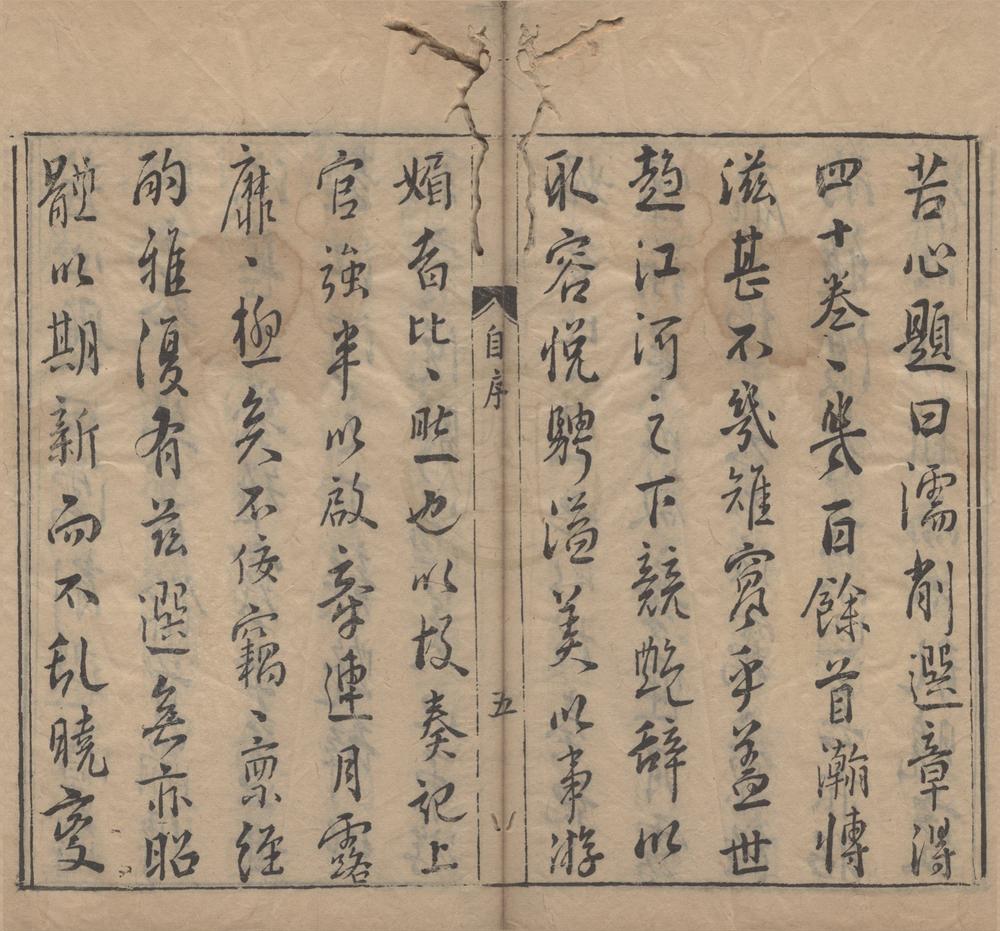 苦心題曰濡削選章得
四十卷、幾百餘首瀚博
滋甚不幾乎蓋世
趨江河之下競艷辭以
取容悅騁溢美以事游
自序
五
媚者比、然也以故奏記上
官強半以啟章連月露
靡、極矣不佞竊、稟經
酌雅復有茲選無亦昭
體以期新而不乱曉變